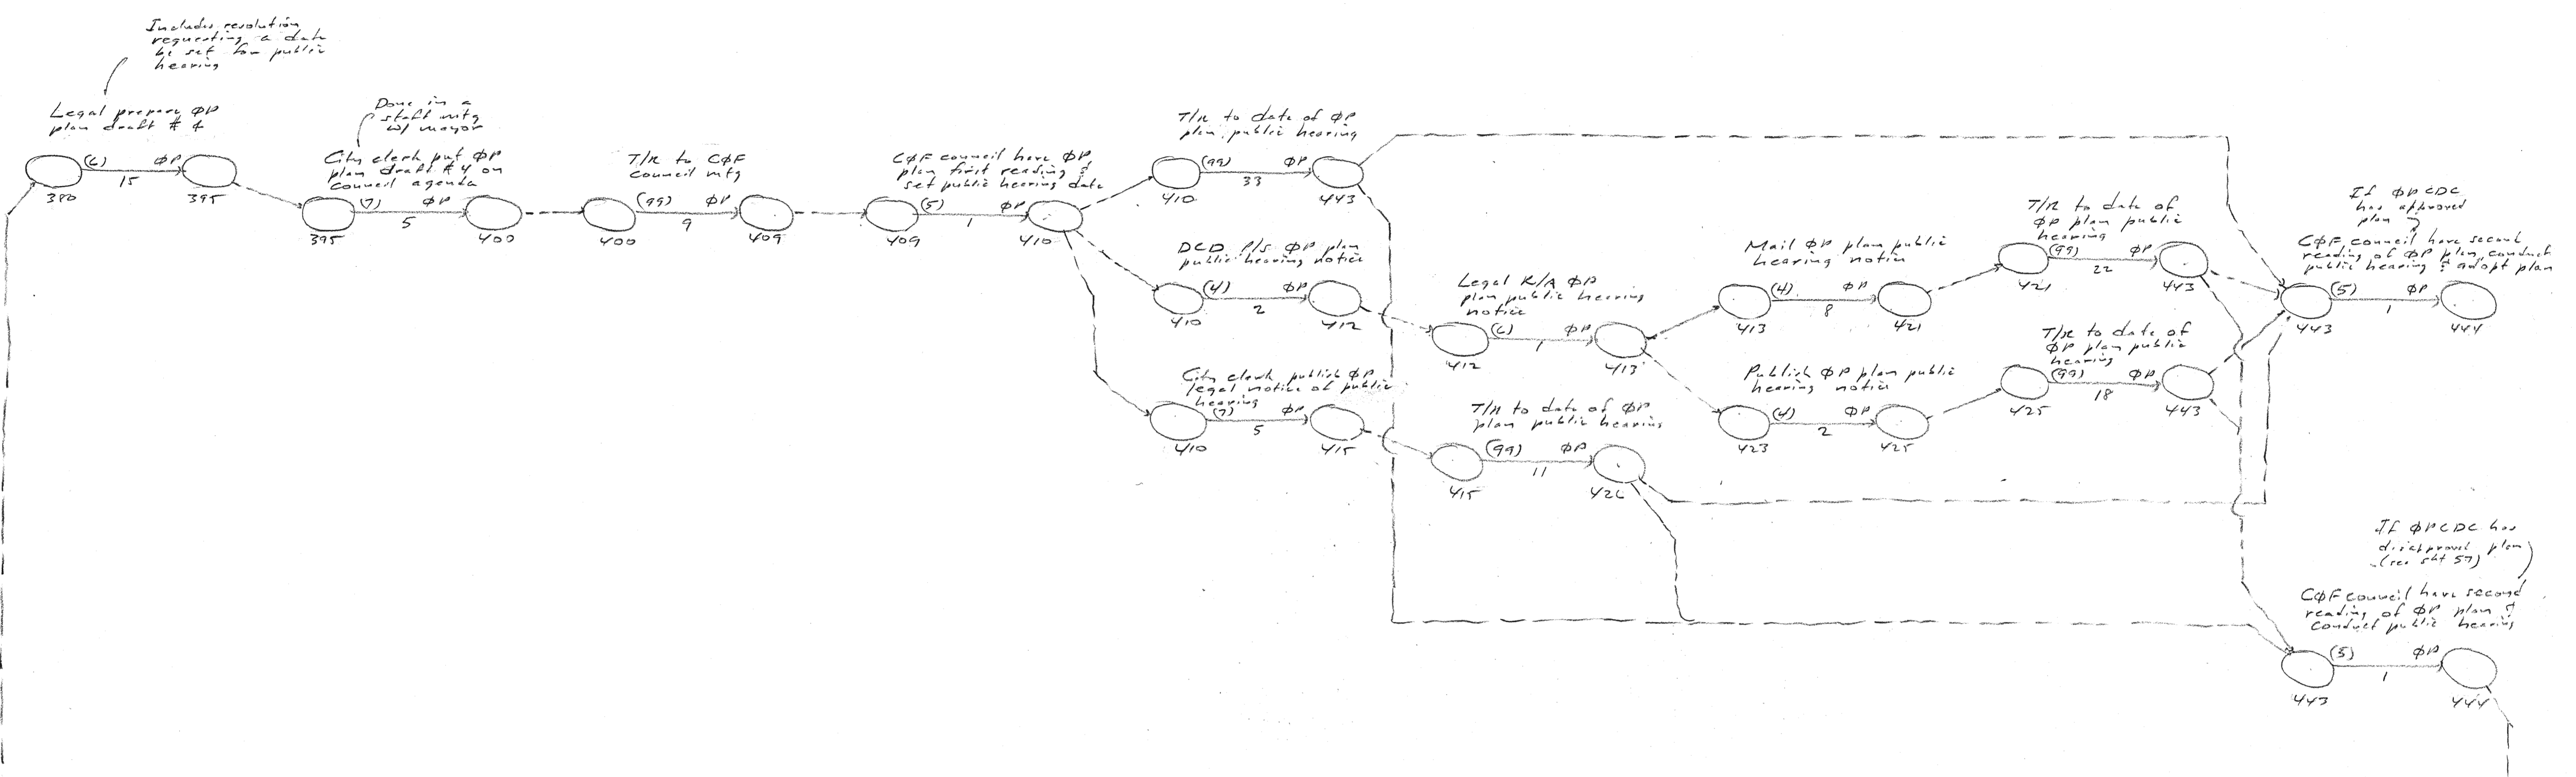 Includes resolution
requesting a date
be set for public
hearing
Legal prepare ØP
plan draft # 4
(6) ØP
15
380 395
Done in a
staff mtg
w/ mayor
City clerk put ØP
plan draft #4 on
council agenda
(7) ØP
5
395 400
T/R to CØF
council mtg
(99) ØP
9
400 409
CØF council have ØP
plan first reading &
set public hearing date
(5) ØP
1
409 410
T/R to date of ØP
plan public hearing
(99) ØP
33
410 443
DCD P/S ØP plan
public hearing notice
(4) ØP
2
410 412
City clerk publish ØP
legal notice of public
hearing
(7) ØP
5
410 415
Legal R/A ØP
plan public hearing
notice
(6) ØP
1
412 413
T/R to date of ØP
plan public hearing
(99) ØP
11
415 426
Mail ØP plan public
hearing notice
(4) ØP
8
413 421
Publish ØP plan public
hearing notice
(4) ØP
2
423 425
T/R to date of
ØP plan public
hearing
(99) ØP
22
421 443
T/R to date of
ØP plan public
hearing
(99) ØP
18
425 443
If ØPCDC
has approved
plan
CØF council have second
reading of ØP plan, conduct
public hearing & adopt plan
(5) ØP
1
443 444
If ØPCDC has
disapproved plan
(see sht 57)
CØF council have second
reading of ØP plan &
conduct public hearing
(5) ØP
1
443 444